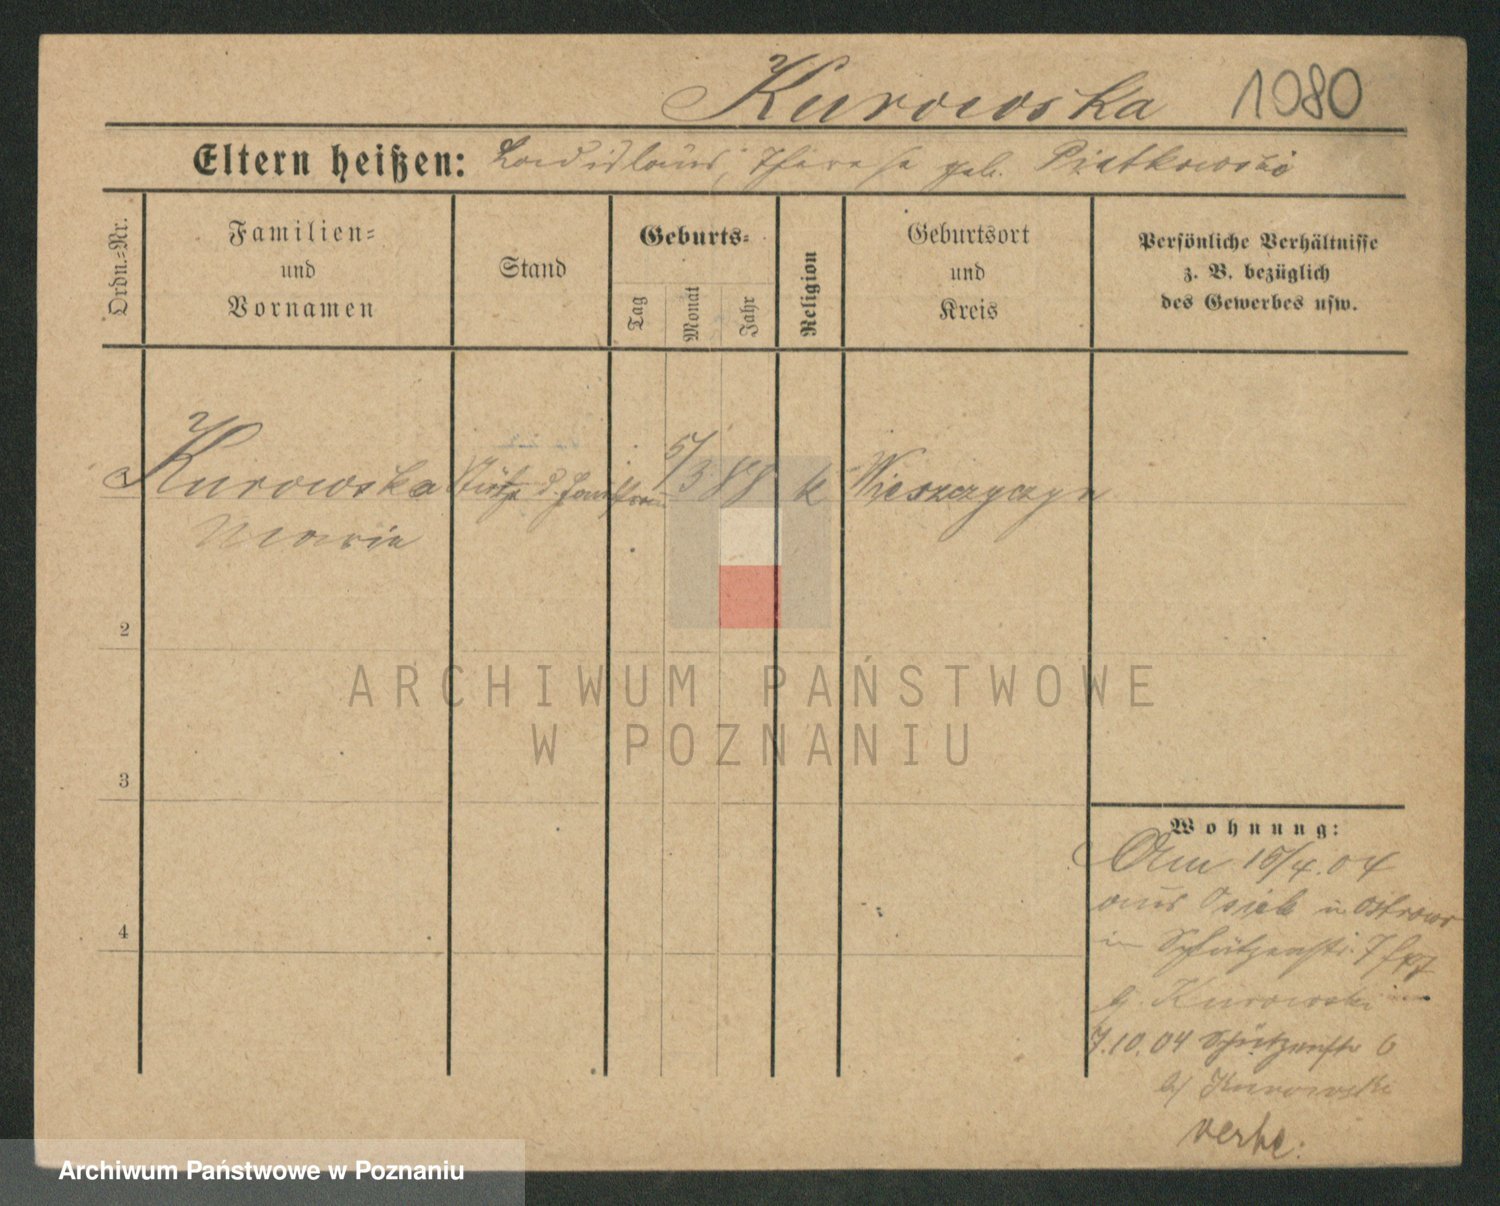 Kurowska 1080
Eltern heißen: Ladislaus, Therese geb. Piatkowski
Ordn.-Nr.
Familien-
und
Vornamen
Stand
Geburts-
Tag
Monat
Jahr
Religion
Geburtsort
und
Kreis
Persönliche Verhältnisse
z. B. bezüglich
des Gewerbes usw.
Kurowska Stütze d. Hausfrau 5/3 88 k Wieszczyczyn
Maria
2
3
4
ARCHIWUM PAŃSTWOWE
W POZNANIU
Wohnung:
Am 15/4.04
aus Osiek in Ostrowo
in Schützenstr. 7
b. Kurowski
7.10.04 Schützenstr 6
b/ Kurowski
verhe.
Archiwum Państwowe w Poznaniu